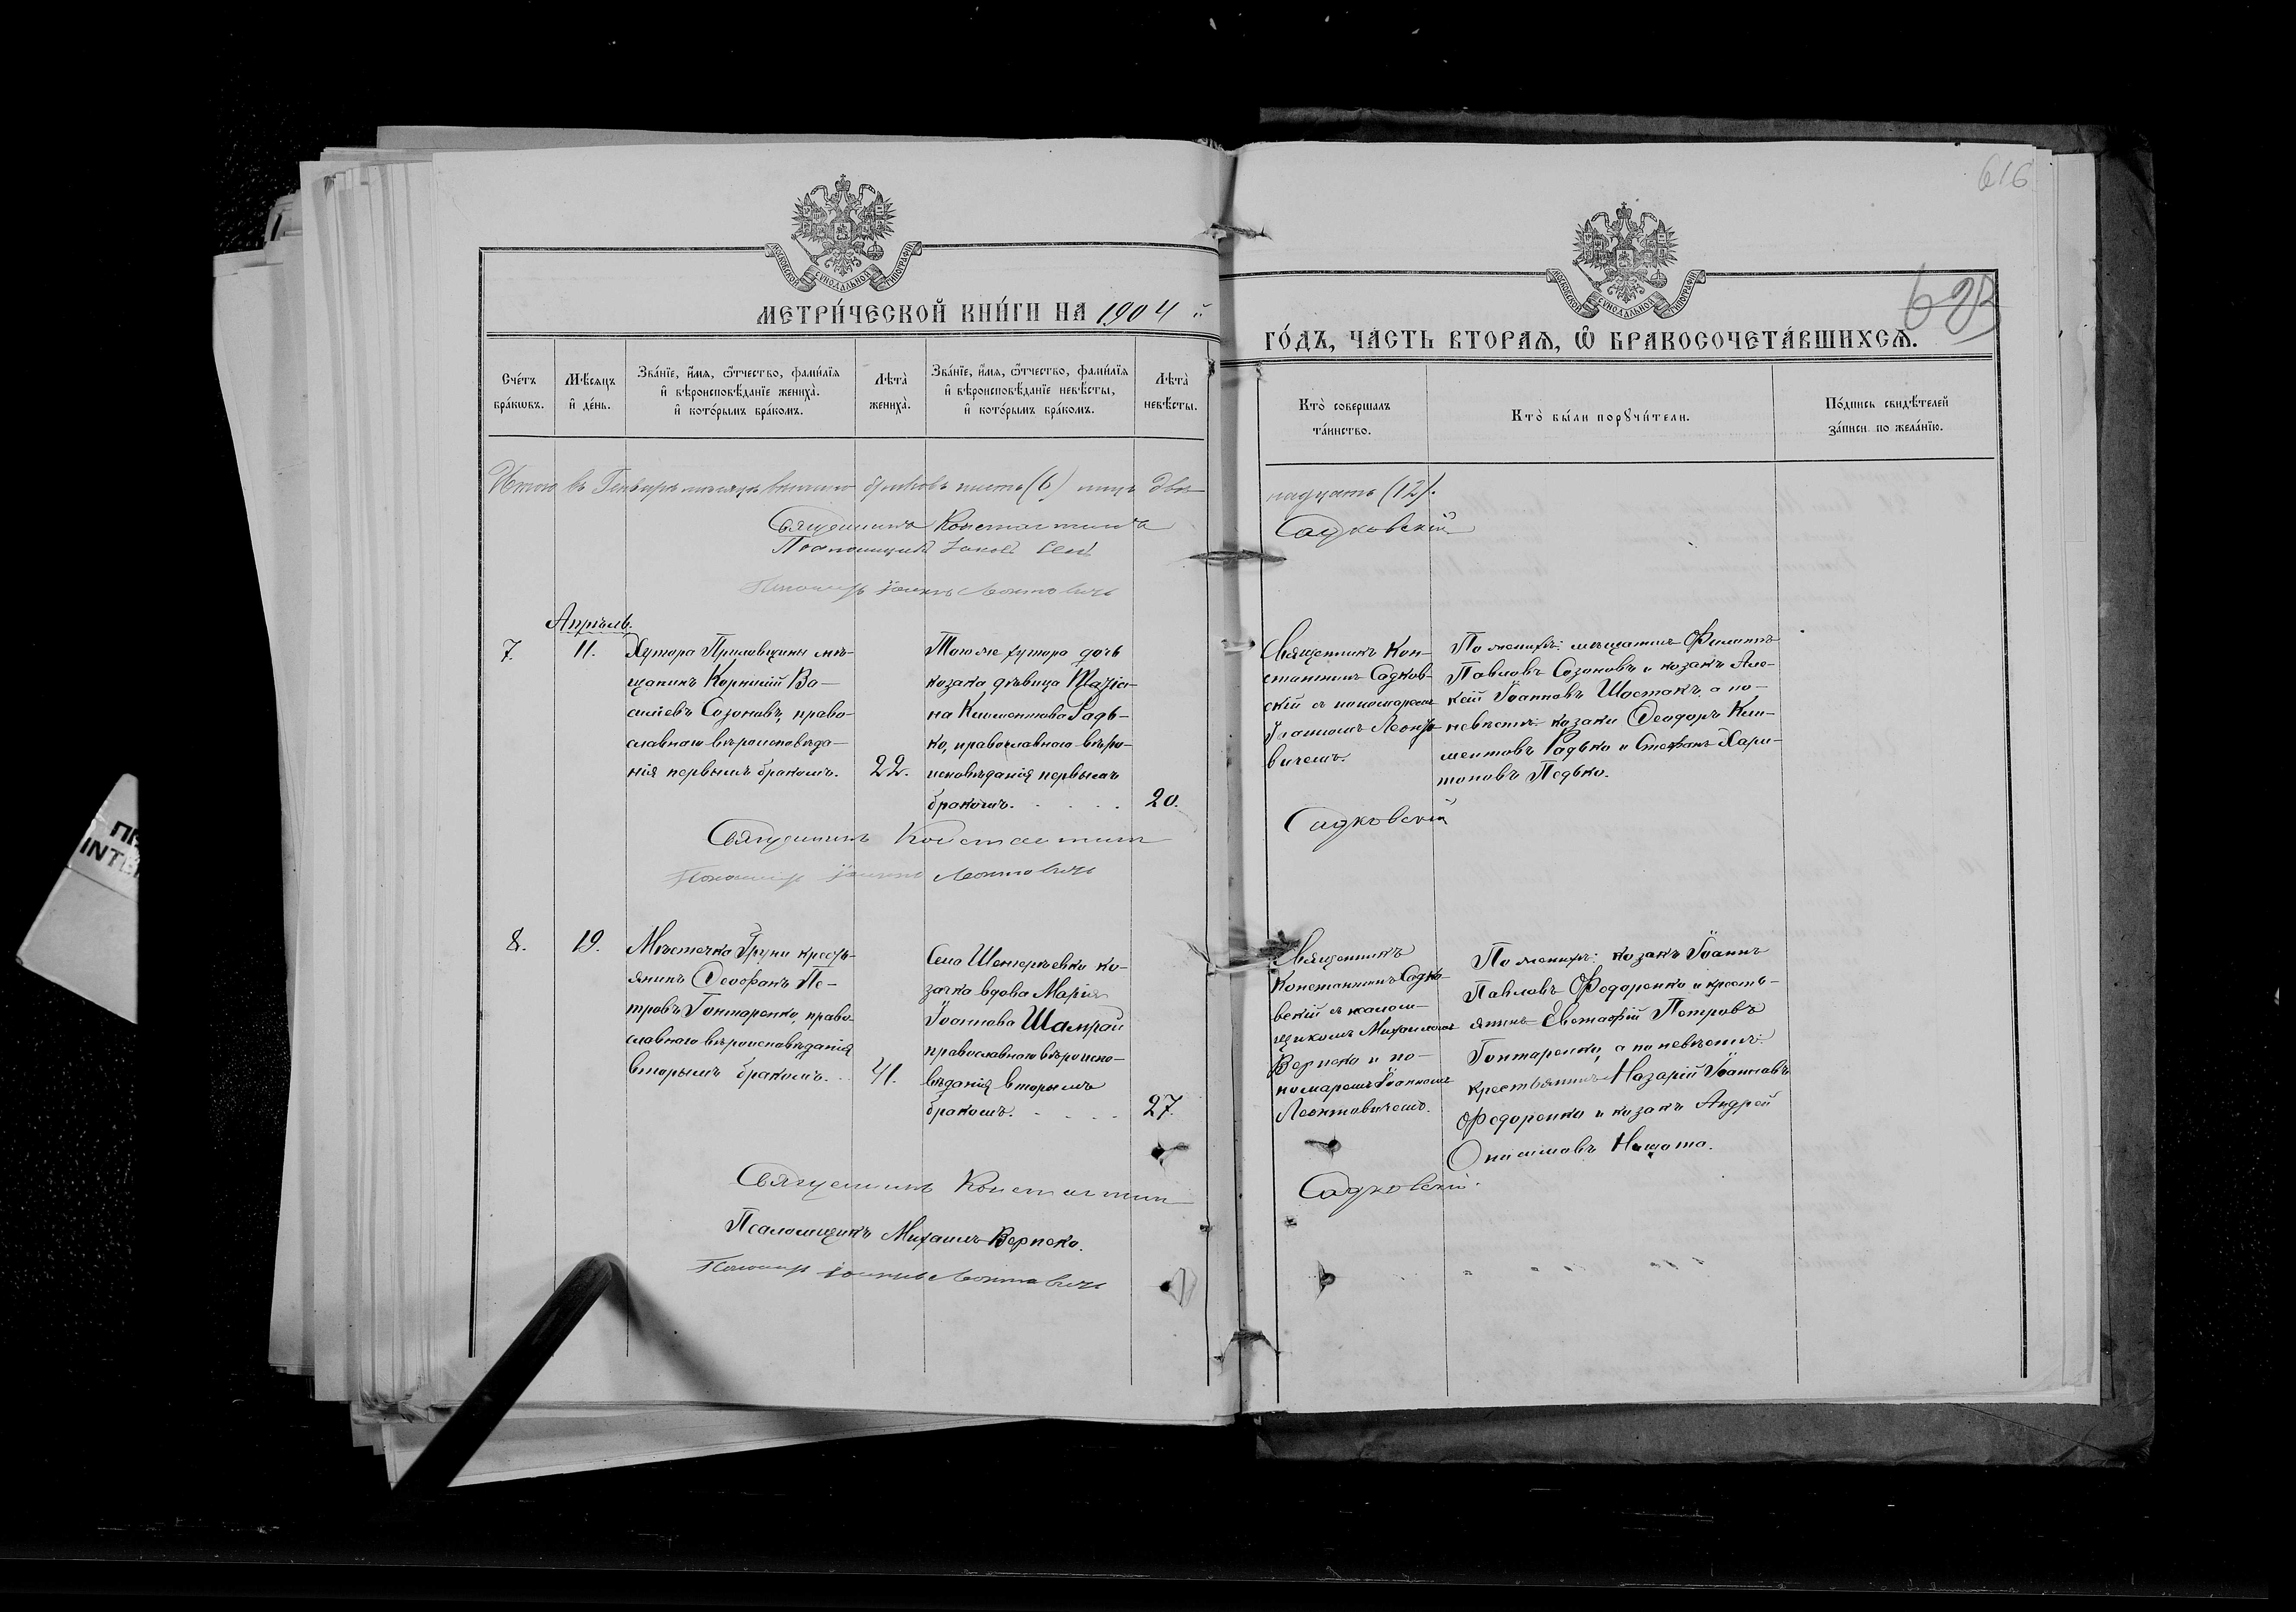 616
683
МОСКОВСКОЙ СУНОДАЛЬНОЙ ТИПОГРАФІИ
МЕТРИ́ЧЕСКОЙ КНИ́ГИ НА 1904 й
Сче́тъ бра́кωвъ.
Мѣ́сяцъ и҆ де́нь.
Зва́нїе, и҆́мя, ѻ҆́тчество, фами́лїя и҆ вѣроисповѣ́данїе жениха̀. и҆ кото́рымъ бра́комъ.
Лѣта̀ жениха̀.
Зва́нїе, и҆́мя, ѻ҆́тчество, фами́лїя и҆ вѣроисповѣ́данїе невѣ́сты, и҆ кото́рымъ бра́комъ.
Лѣта̀ невѣ́сты.
МОСКОВСКОЙ СУНОДАЛЬНОЙ ТИПОГРАФІИ
ГО́ДЪ, ЧАСТЬ ВТОРАѦ, Ѽ БРАКОСОЧЕТА́ВШИХСѦ.
Кто̀ соверша́лъ та́инство.
Кто̀ бы́ли порꙋчи́тели.
По́дпись свидѣ́телей за́писи по жела́нїю.
Итого въ Генварѣ мѣсяцѣ браковъ шесть (6) лицъ двѣ-
надцать (12).
Священникъ Константинъ Садковскій
Псаломщикъ
Пономарь Іоаннъ Леонтовичъ
Апрѣль.
7.
11.
Хутора Приловщины мѣ-
щанинъ Корнилій Ва-
силіевъ Созоновъ, право-
славнаго вѣроисповѣда-
нія первымъ бракомъ.
22.
Того же хутора дочь
козака дѣвица Татіа-
на Климентова Радь-
ко, православнаго вѣро-
исповѣданія первымъ
бракомъ.
20.
Священникъ Кон-
стантинъ Садков-
скій съ пономаремъ
Іоанномъ Леонто-
вичемъ.
По женихѣ: мѣщанинъ Филиппъ
Павловъ Созоновъ и козакъ Але-
ксій Іоанновъ Шостакъ, а по-
невѣстѣ: козаки Ѳеодоръ Кли-
ментовъ Радько и Стефанъ Хари-
тоновъ Педько.
Священникъ Константинъ Садковскій
Пономарь Іоаннъ Леонтовичъ
8.
19.
Мѣстечка Груни кресть-
янинъ Ѳеофанъ Пе-
тровъ Гонтаренко, право-
славнаго вѣроисповѣданія
вторымъ бракомъ.
41.
Села Шенгеревки ко-
зачка вдова Марія
Іоаннова Шамрай
православнаго вѣроиспо-
вѣданія вторымъ
бракомъ.
27.
Священникъ
Константинъ Садко-
вскій съ псалом-
щикомъ Михаиломъ
Вернеко и по-
номаремъ Іоанномъ
Леонтовичемъ.
По женихѣ: козакъ Іоаннъ
Павловъ Федоренко и кресть-
янинъ Евстафій Петровъ
Гонтаренко, а по невѣстѣ:
крестьянинъ Назарій Іоанновъ
Федоренко и козакъ Андрей
Нащота.
Священникъ Константинъ Садковскій.
Псаломщикъ Михаилъ Вернеко.
Пономарь Іоаннъ Леонтовичъ